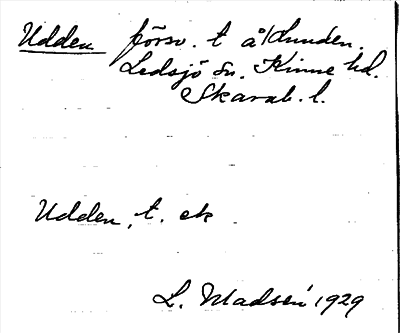 Udden försv. t å/Lunden.
Ledsjö sn. Kinne hd.
Skarab. l.
Udden, t. ek
L. Madsén 1929